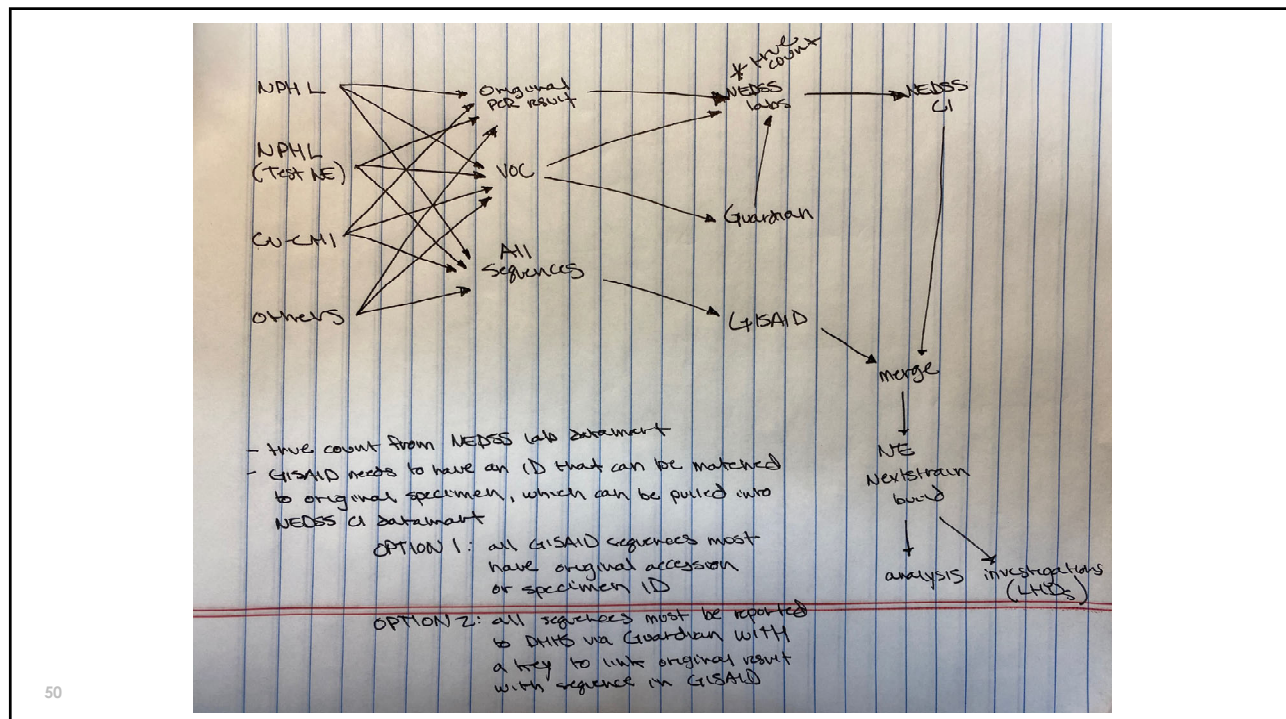 * true
count
NPHL
Original
PCR result
NEDSS
labs
NEDSS
CI
NPHL
(Test NE)
VOC
Guardian
CU-CHI
All
sequences
others
GISAID
merge
NE
Nextstrain
build
analysis
investigations
(LHDs)
- true count from NEDSS lab datamart
- GISAID needs to have an ID that can be matched
to original specimen, which can be pulled into
NEDSS CI datamart
OPTION 1: all GISAID sequences most
have original accession
or specimen ID
OPTION 2: all sequences must be reported
to DHHS via Guardian with
a key to link original result
with sequence in GISAID
50